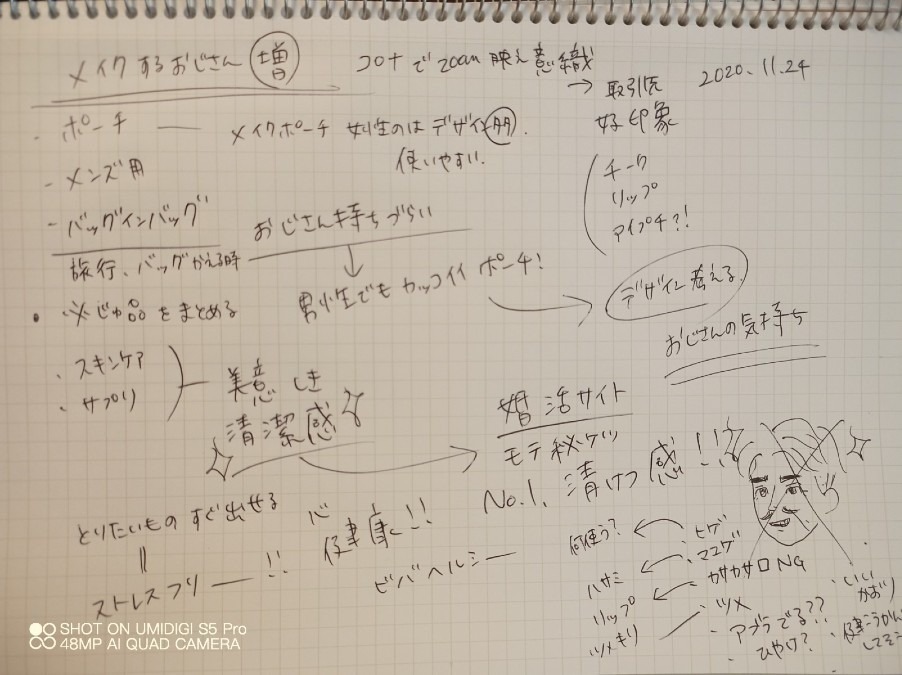 メイクするおじさん 増
コロナでzoom 映え意識
→ 取引先
好印象
2020.11.24
・ポーチ ― メイクポーチ 女性のはデザイン多.
使いやすい.
- メンズ用
- バッグインバッグ
旅行、バッグかえる時
チーク
リップ
アイプチ?!
おじさん持ちづらい
↓
男性でもカッコイイ ポーチ!
デザイン考える.
おじさんの気持ち
• 必じゅ品をまとめる
・スキンケア
・サプリ
美意しき
清潔感
婚活サイト
モテ秘ケツ
No.1. 清けつ感!!
とりたいものすぐ出せる
||
ストレスフリー!!
心
健康!!
ビバヘルシー
何使う? ← ヒゲ
ハサミ ← マユゲ
リップ ← カサカサ口NG
ツメキリ ― ・ツメ
・アブラでる??
ひやけ?
・いい
かおり
健こうかん
してそう
SHOT ON UMIDIGI S5 Pro
48MP AI QUAD CAMERA